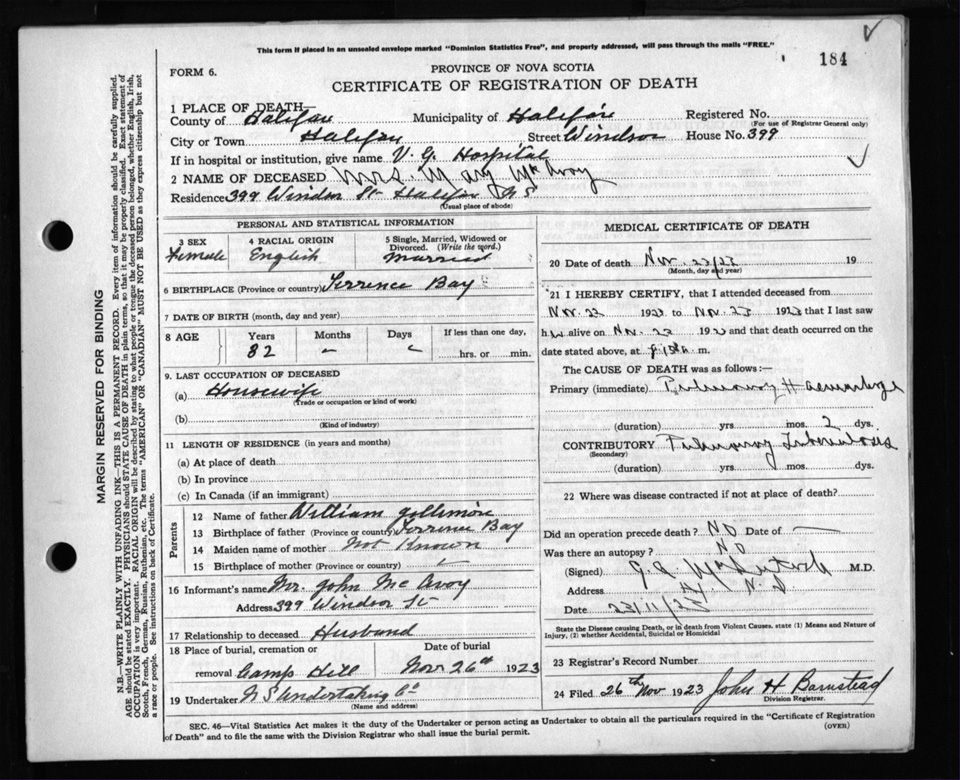 This form if placed in an unsealed envelope marked "Dominion Statistics Free", and properly addressed, will pass through the mails "FREE."
184
FORM 6.
PROVINCE OF NOVA SCOTIA
CERTIFICATE OF REGISTRATION OF DEATH
1 PLACE OF DEATH—
County of Halifax Municipality of Halifax Registered No.
(For use of Registrar General only)
City or Town Halifax Street Windsor House No. 399
If in hospital or institution, give name V. G. Hospital
2 NAME OF DECEASED Mrs. Mary McAvoy
Residence 399 Windsor St Halifax N S
(Usual place of abode)
PERSONAL AND STATISTICAL INFORMATION
3 SEX 4 RACIAL ORIGIN 5 Single, Married, Widowed or Divorced. (Write the word.)
Female English Married
6 BIRTHPLACE (Province or country) Terrence Bay
7 DATE OF BIRTH (month, day and year)
8 AGE Years Months Days If less than one day,
32 – hrs. or min.
9. LAST OCCUPATION OF DECEASED
(a) Housewife
(Trade or occupation or kind of work)
(b)
(Kind of industry)
11 LENGTH OF RESIDENCE (in years and months)
(a) At place of death
(b) In province
(c) In Canada (if an immigrant)
Parents
12 Name of father William
13 Birthplace of father (Province or country) Terrence Bay
14 Maiden name of mother Not Known
15 Birthplace of mother (Province or country)
16 Informant's name Mr. John McAvoy
Address 399 Windsor St
17 Relationship to deceased Husband
18 Place of burial, cremation or removal Camp Hill Date of burial Nov 26th 1923
19 Undertaker N S Undertaking Co
(Name and address)
MEDICAL CERTIFICATE OF DEATH
20 Date of death Nov. 23/23 19
(Month, day and year)
21 I HEREBY CERTIFY, that I attended deceased from
Nov. 22 1923 to Nov. 23 1923 that I last saw
h alive on Nov. 23 19 and that death occurred on
date stated above, at m.
The CAUSE OF DEATH was as follows:—
Primary (immediate) Pulmonary Haemorrhage
(duration) yrs. mos. 2 dys.
CONTRIBUTORY Pulmonary Tuberculosis
(Secondary)
(duration) yrs. mos. dys.
22 Where was disease contracted if not at place of death?
Did an operation precede death? NO Date of —
Was there an autopsy? NO
(Signed) M.D.
Address
Date 23/11/23
State the Disease causing Death, or in death from Violent Causes, state (1) Means and Nature of
Injury, (2) whether Accidental, Suicidal or Homicidal
23 Registrar's Record Number
24 Filed 26th Nov 1923 John H Barnstead
Division Registrar.
SEC. 46—Vital Statistics Act makes it the duty of the Undertaker or person acting as Undertaker to obtain all the particulars required in the "Certificate of Registration
of Death" and to file the same with the Division Registrar who shall issue the burial permit.
(OVER)
MARGIN RESERVED FOR BINDING
N.B.—WRITE PLAINLY WITH UNFADING INK—THIS IS A PERMANENT RECORD. Every item of information should be carefully supplied.
AGE should be stated EXACTLY. PHYSICIANS should STATE CAUSE OF DEATH in plain terms, so that it may be properly classified. Exact statement of
OCCUPATION is very important. RACIAL ORIGIN will be described by stating to what people or tongue the deceased person belonged, whether English, Irish,
Scotch, French, German, Russian, Ruthenian, etc. The terms "AMERICAN" OR "CANADIAN" MUST NOT BE USED as they express citizenship but not
a race or people. See instructions on back of Certificate.